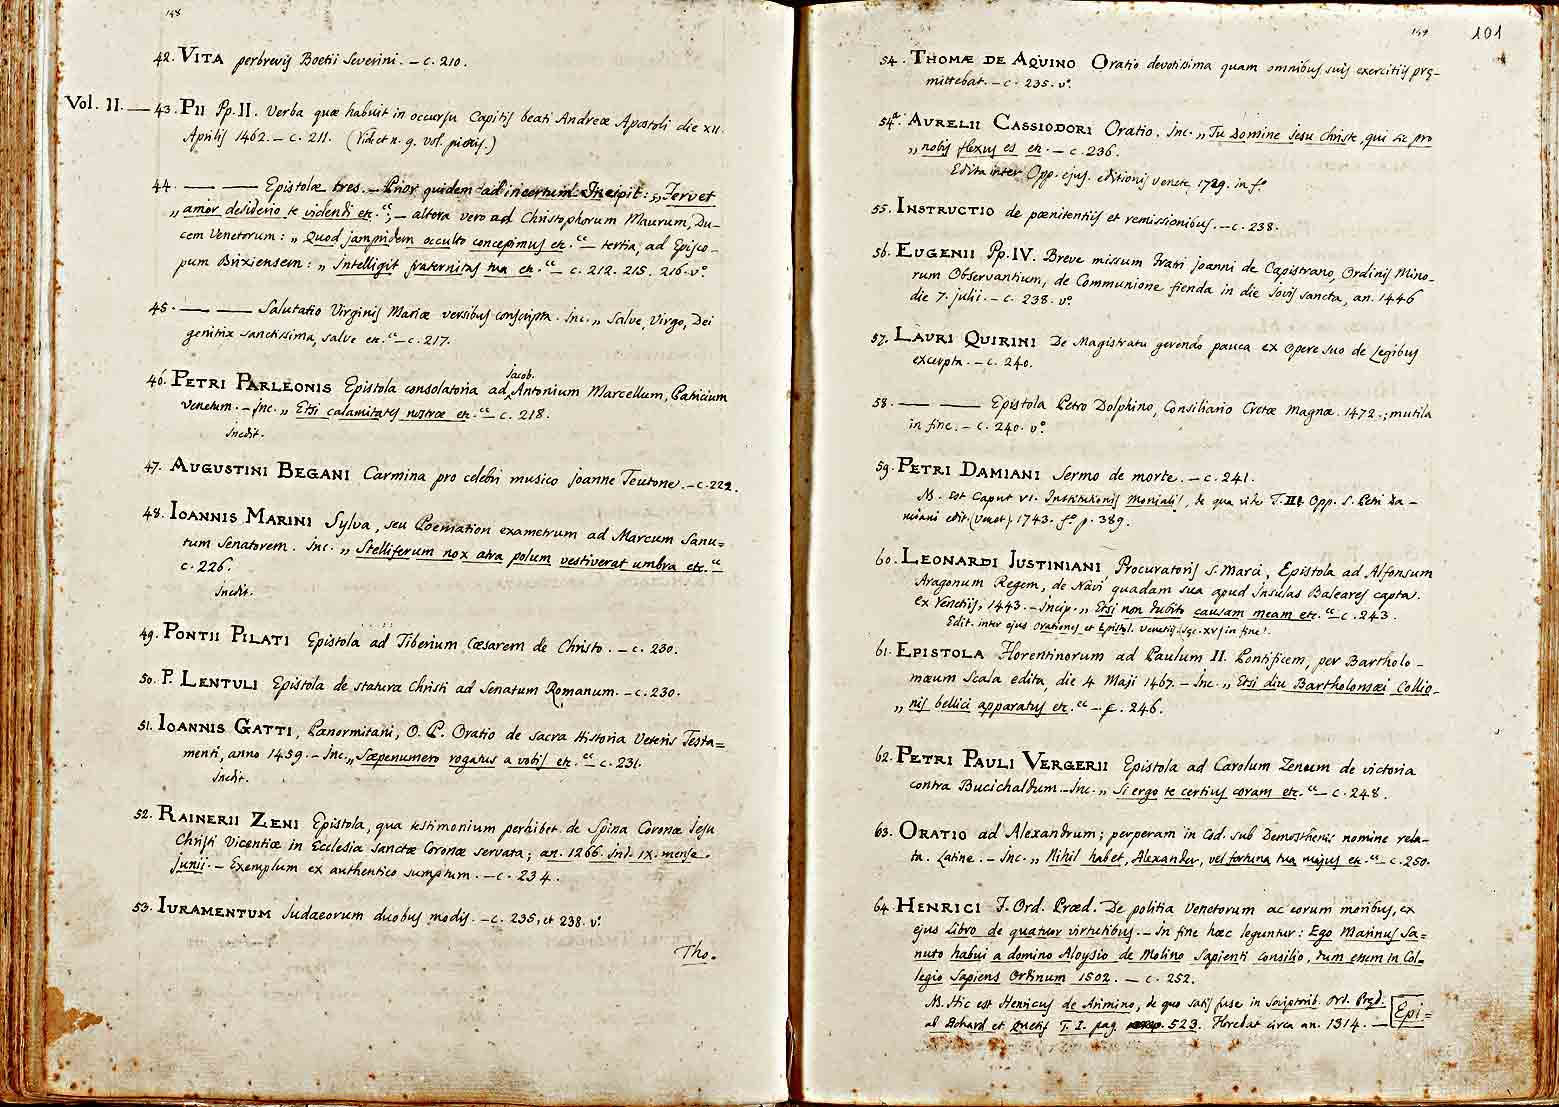 148
42. VITA perbrevis Boetii Severini. – c. 210.
Vol. II. — 43. PII Pp. II. Verba quæ habuit in occursu Capitis beati Andreæ Apostoli die XII.
Aprilis 1462. – c. 211. (Vide et n. 9. vol. prioris.)
44. — — Epistolæ tres. – Prior quidem ad incertum. Incipit: „ Fervet
„ amor desiderio te videndi etc.“; – altera vero ad Christophorum Maurum, Du-
cem Venetorum: „ Quod jampridem occulto concepimus etc.“ – tertia, ad Episco-
pum Brixiensem: „ Intelligit fraternitas tua etc.“ – c. 212. 215. 216. v.°
45. — — Salutatio Virginis Mariæ versibus conscripta. Inc. „ Salve, Virgo, Dei
genitrix sanctissima, salve etc.“ – c. 217.
46. PETRI PARLEONIS Epistola consolatoria ad Jacob. Antonium Marcellum, Patricium
Venetum. – Inc. „ Etsi calamitates nostræ etc.“ – c. 218.
inedit.
47. AUGUSTINI BEGANI Carmina pro celebri musico Joanne Teutone. – c. 222.
48. IOANNIS MARINI Sylva, seu Poemation exametrum ad Marcum Sanu=
tum Senatorem. Inc. „ Stelliferum nox atra polum vestiverat umbra etc.“
c. 226.
Inedit.
49. PONTII PILATI Epistola ad Tiberium Cæsarem de Christo. – c. 230.
50. P. LENTULI Epistola de statura Christi ad Senatum Romanum. – c. 230.
51. IOANNIS GATTI, Panormitani, O. P. Oratio de Sacra Historia Veteris Testa=
menti, anno 1459. – Inc. „ Sæpenumero rogatus a vobis etc.“ – c. 231.
Inedit.
52. RAINERII ZENI Epistola, qua testimonium perhibet de Spina Coronæ Jesu
Christi Vicentiæ in Ecclesia Sanctæ Coronæ servata; an. 1266. Ind. IX. mense.
Junii. – Exemplum ex authentico sumptum. – c. 234.
53. IURAMENTUM Judaeorum duobus modis. – c. 235, et 238. v.°
Tho.
149 101
54. THOMÆ DE AQUINO Oratio devotissima quam omnibus suis exercitiis prę-
mittebat. – c. 235. v.°
54.a AURELII CASSIODORI Oratio. Inc. „ Tu Domine Jesu Christe, qui sic pro
„ nobis flexus es etc. – c. 236.
Edita inter Opp. ejus. editionis Venetę 1729. in f.°
55. INSTRUCTIO de pœnitentiis et remissionibus. – c. 238.
56. EUGENII Pp. IV. Breve missum Fratri Joanni de Capistrano, Ordinis Mino-
rum Observantium, de Communione fienda in die Jovis sancta, an. 1446
die 7. Julii. – c. 238. v.°
57. LAURI QUIRINI De Magistratu gerendo pauca ex Opere suo de Legibus
excerpta. – c. 240.
58. — — Epistola Petro Dolphino, Consiliario Cretæ Magnæ. 1472.; mutila
in fine. – c. 240. v.°
59. PETRI DAMIANI Sermo de morte. – c. 241.
N. Est Caput VI. Institutionis Monialis, de qua vide T. III. Opp. S. Petri Da-
miani edit. (Venet.) 1743. f.° p. 389.
60. LEONARDI JUSTINIANI Procuratoris S. Marci, Epistola ad Alfonsum
Aragonum Regem, de Navi quadam sua apud Insulas Baleares capta.
ex Venetiis, 1443. – Incip. „ Etsi non dubito causam meam etc.“ – c. 243.
Edit. inter ejus Orationes et Epistol. Venetiis. Sęc. XV. in fine.
61. EPISTOLA Florentinorum ad Paulum II. Pontificem, per Bartholo-
mæum Scala edita, die 4 Maji 1467. – Inc. „ Etsi diu Bartholomæi Collio-
„ nis bellici apparatus etc.“ – c. 246.
62. PETRI PAULI VERGERII Epistola ad Carolum Zenum de victoria
contra Bucichaldum. – Inc. „ Si ergo te certius coram etc.“ – c. 248.
63. ORATIO ad Alexandrum; perperam in Cod. sub Demosthenis nomine rela-
ta. Latine. – Inc. „ Nihil habet, Alexander, vel fortuna tua majus etc.“ – c. 250.
64. HENRICI F. Ord. Præd. De politia Venetorum ac eorum moribus, ex
ejus Libro de quatuor virtutibus. – In fine hæc leguntur: Ego Marinus Sa=
nuto habui a domino Aloysio de Molino Sapienti consilio, dum essem in Col=
legio Sapiens Ordinum 1502. – c. 252.
N. Hic est Henricus de Arimino, de quo satis fuse in Scriptorib. Ord. Pręd.
al Echard et Quetif T. I. pag. 523. Florebat circa an. 1314. – Epi=